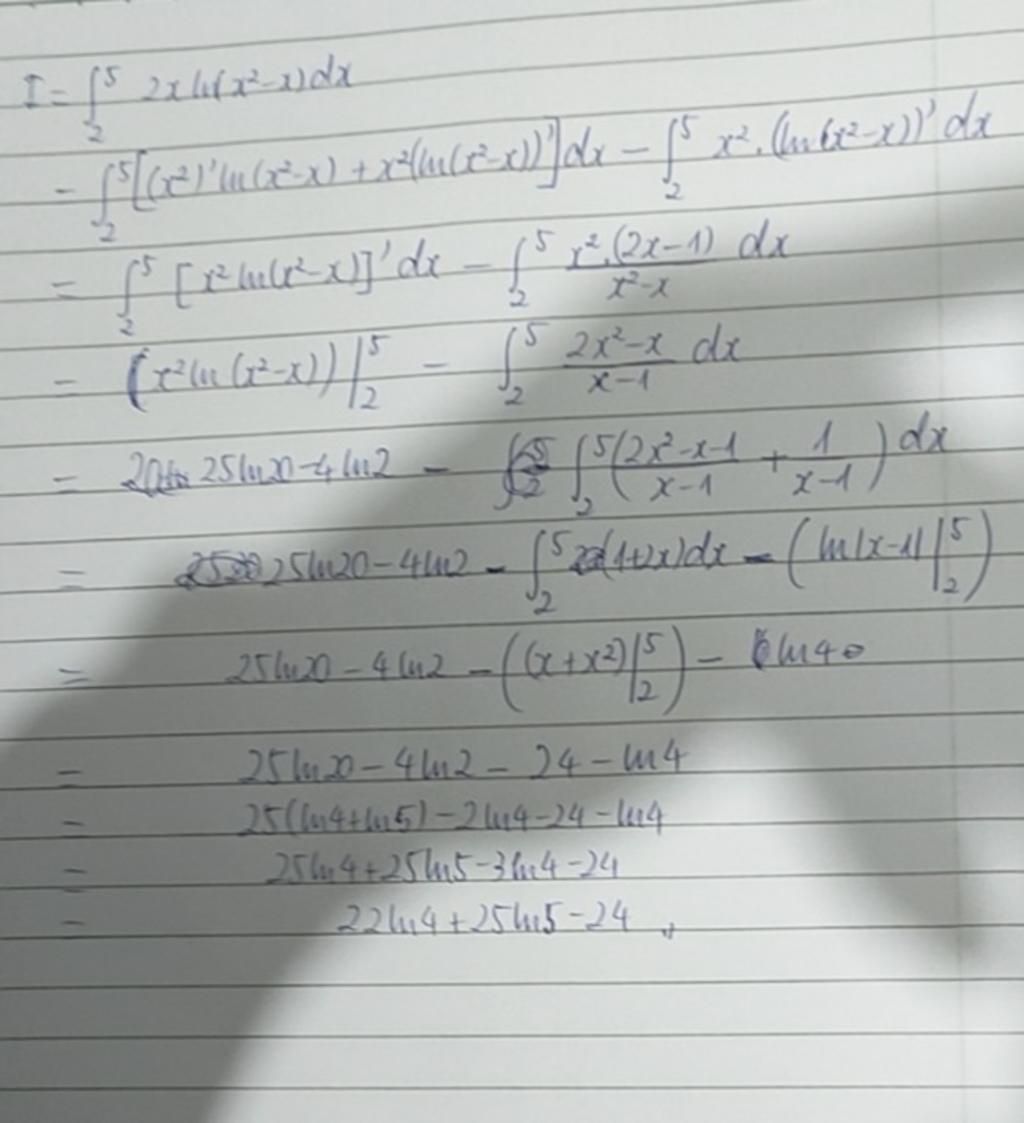 I = ∫₂⁵ 2x ln(x²-x)dx
= ∫₂⁵ [(x²)' ln(x²-x) + x²(ln(x²-x))']dx - ∫₂⁵ x².(ln(x²-x))' dx
= ∫₂⁵ [x² ln(x²-x)]' dx - ∫₂⁵ x².(2x-1)/(x²-x) dx
= (x² ln(x²-x))|₂⁵ - ∫₂⁵ (2x²-x)/(x-1) dx
= 25ln20 - 4ln2 - ∫₂⁵ ((2x²-x-1)/(x-1) + 1/(x-1)) dx
= 25ln20 - 4ln2 - ∫₂⁵ (1+2x)dx - (ln|x-1| |₂⁵)
= 25ln20 - 4ln2 - ((x+x²)|₂⁵) - ln4
= 25ln20 - 4ln2 - 24 - ln4
= 25(ln4+ln5) - 2ln4 - 24 - ln4
= 25ln4 + 25ln5 - 3ln4 - 24
= 22ln4 + 25ln5 - 24